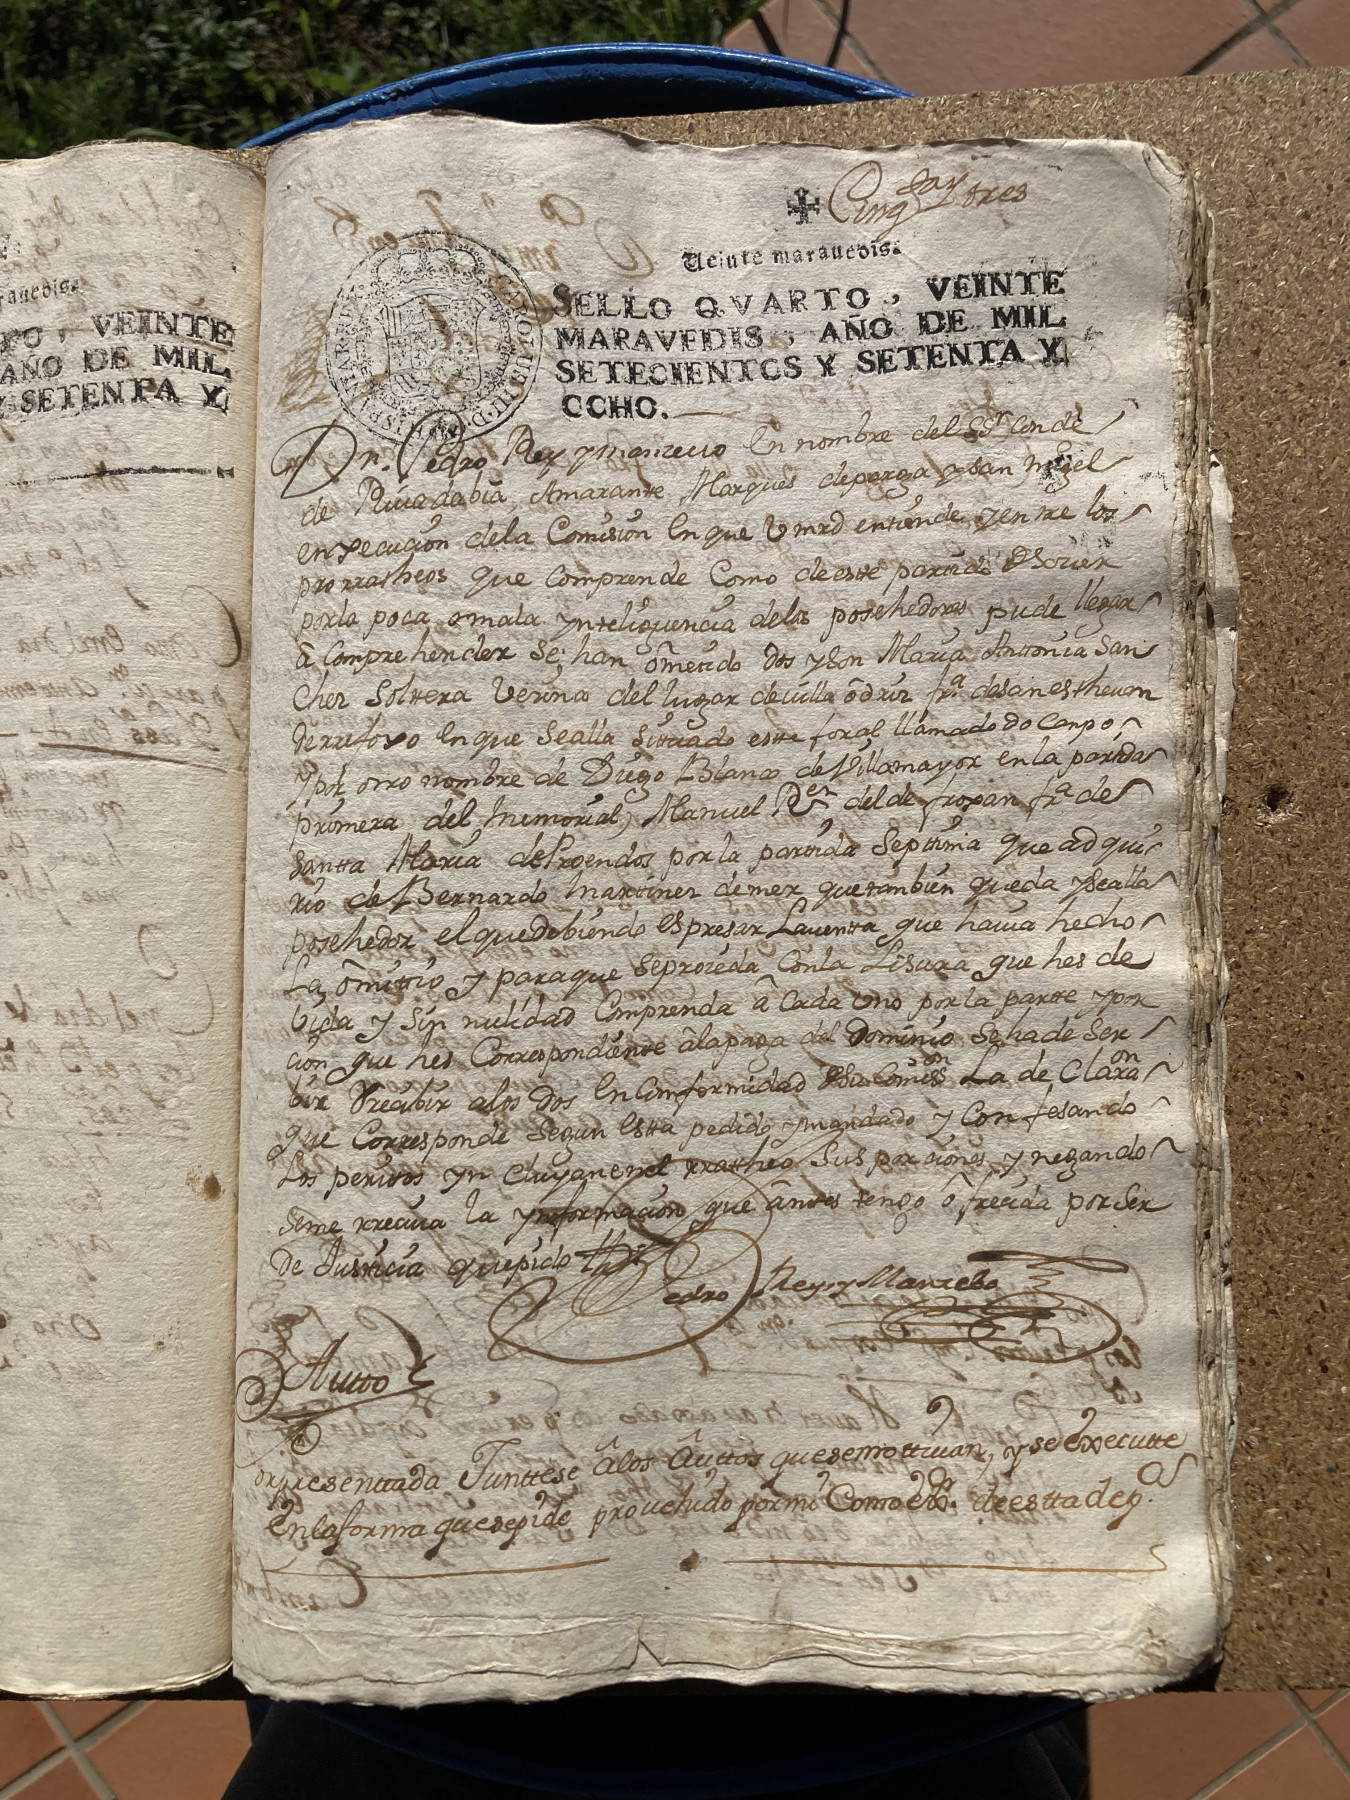 Cinqta y tres
Veinte maravedis.
SELLO QVARTO, VEINTE
MARAVEDIS, AÑO DE MIL
SETECIENTOS Y SETENTA Y
OCHO.
Dn. Pedro Rey y manzevo En nombre del Ssr Conde
de Rivadabia, Amarante Marques deparga y san Migel
en execucion dela Comision En que Vmrd entiende, y entre los
prorratheos que comprende Como de este partido
por la poca o mala ynteligencia delos posehedores pude llegar
a Comprehender se, han ômetido dos y Son Maria Antonia San
chez Solttera Vecina del lugar de villa ôdriz fra. de san estheван
En que Sealla Sittuado este foral llamado do Campo
y por otro nombre de Diego Blanco de Villamayor en la partida
primera del memorial, Manuel Rs. del de froxan fra de
Santta Maria de Proendos por la partida Septtima que adqui
rio de Bernardo Martinez demer que tambien queda y sealla
posehedor el que debiendo Espresar La ventta que havia hecho
La, ômittio y paraque Seproceda Conla Lisura que hes de
vida y sin nulidad Comprenda â Cada Uno por la parte y por
cion que hes Correspondiente âlapaga del Dominio Sehade Ser
bir Recibir alos dos En Conformidad Comison La de Claraon
que Corresponde Segun Estta pedido y mandado y Confesando
Los peritos yn cluyan en el rratheo Sus porciones, y negando
Seme rreciva la ynformacion que ântes tengo ôfrecida por Ser
De Justicia que pido
Pedro Rey y Manzebo
Autto
Por presenttada Junttese âlos Âuttos que semottivan, y se êxecutte
ên la forma que sepide proveido por mi Como de estta dep.